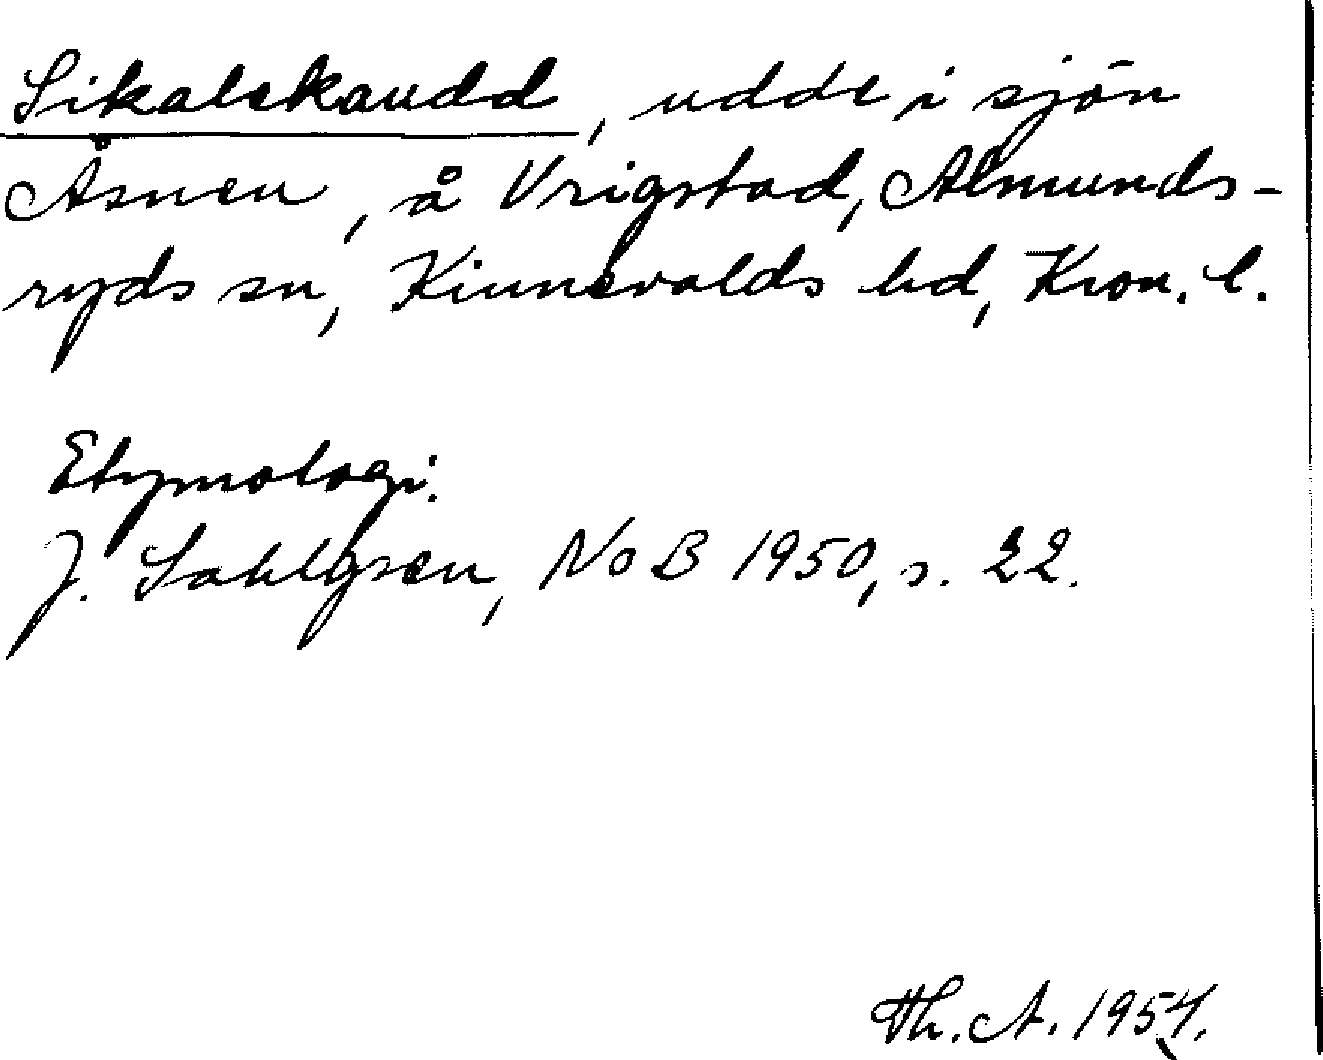 Sikalekaudd, udde i sjön
Åsnen, å Vrigstad, Almunds-
ryds sn, Kinnevalds hd, Kron. l.
Etymologi:
J. Sahlgren, NoB 1950, s. 22.
Th. A. 1954.